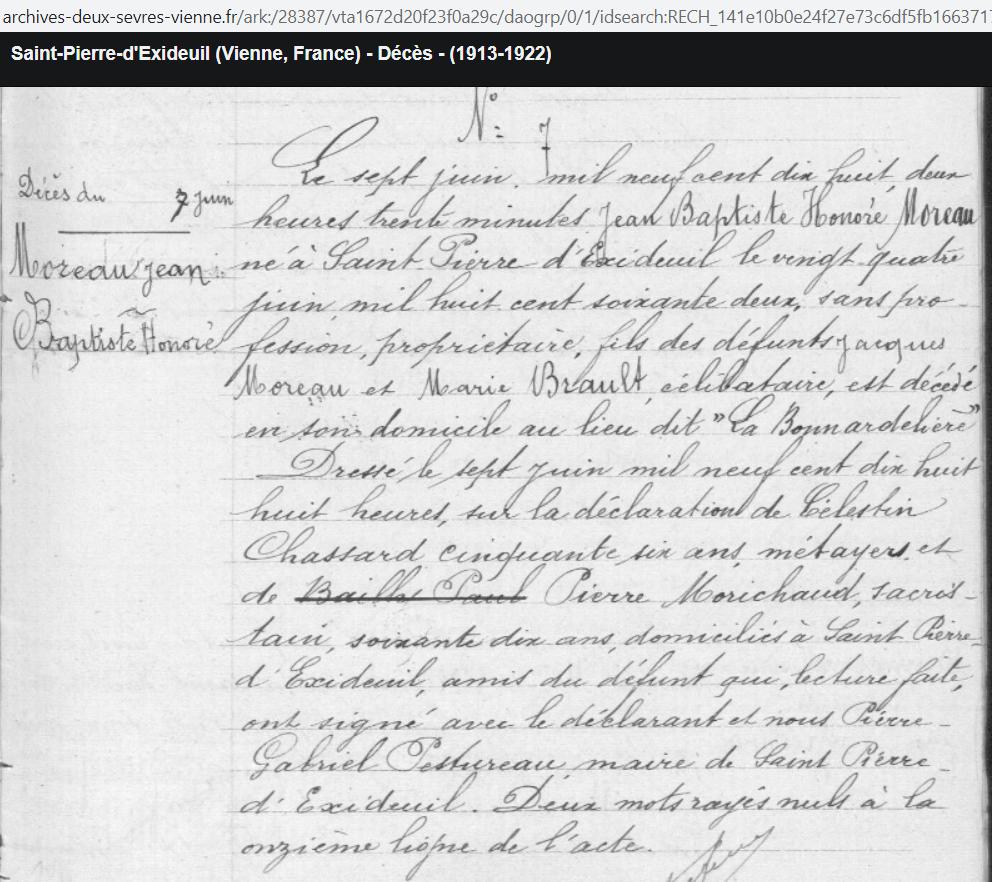 archives-deux-sevres-vienne.fr/ark:/28387/vta1672d20f23f0a29c/daogrp/0/1/idsearch:RECH_141e10b0e24f27e73c6df5fb1663717
Saint-Pierre-d'Exideuil (Vienne, France) - Décès - (1913-1922)
N° 7
Décès du 7 juin
Moreau Jean
Baptiste Honoré
Le sept juin mil neuf cent dix huit, deux
heures trente minutes Jean Baptiste Honoré Moreau
né à Saint Pierre d'Exideuil le vingt quatre
juin mil huit cent soixante deux, sans pro-
fession, propriétaire, fils des défunts Jacques
Moreau et Marie Brault, célibataire, est décédé
en son domicile au lieu dit "La Bonnardelière"
Dressé le sept juin mil neuf cent dix huit
huit heures, sur la déclaration de Célestin
Chassard cinquante six ans, métayers et
de Bailly Paul Pierre Morichaud, sacris-
tain, soixante dix ans, domiciliés à Saint Pierre-
d'Exideuil, amis du défunt qui, lecture faite,
ont signé avec le déclarant et nous Pierre-
Gabriel Pestureau maire de Saint Pierre-
d'Exideuil. Deux mots rayés nuls à la
onzième ligne de l'acte.